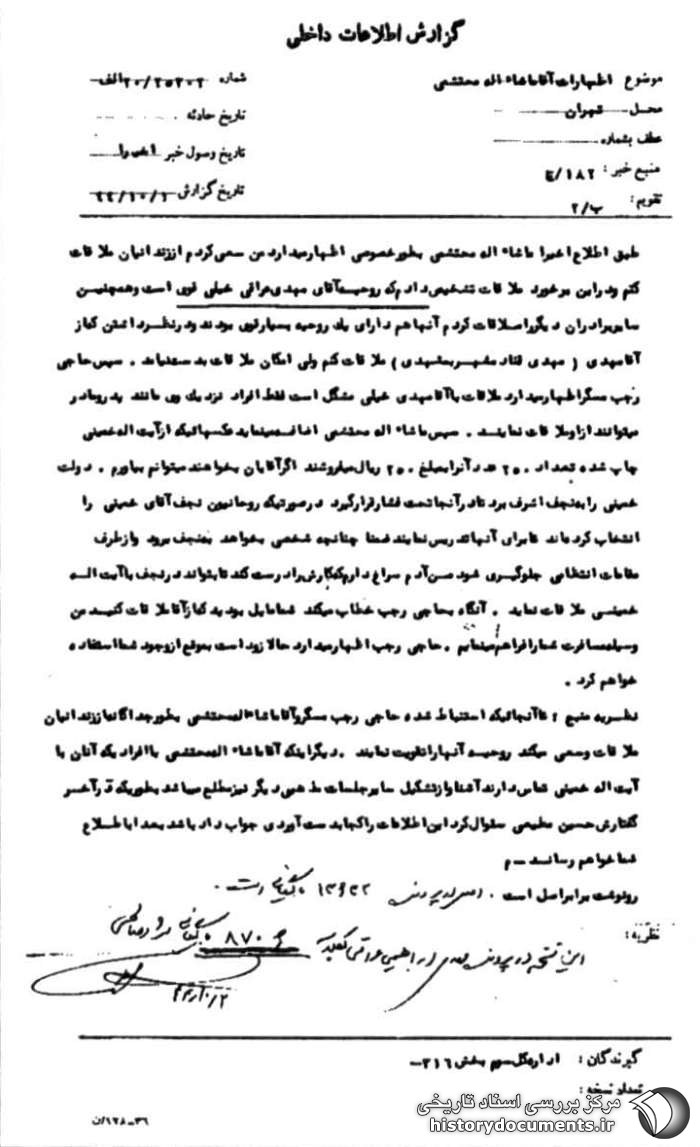 گزارش اطلاعات داخلی
موضوع اظهارات آقا ماشاءاله محتشمی
شماره ۲۰/۲۵۳۰۲ الف
محل تهران
تاریخ حادثه
عطف بشماره
تاریخ وصول خبر اخیرا
منبع خبر : ۱۸۲/ج
تاریخ گزارش ۴۴/۱۰/۲
تقویم : ب/۲
طبق اطلاع اخیرا ماشاء اله محتشمی بطور خصوصی اظهار میدارد من سعی کردم از زندانیان ملاقات
کنم و در این برخورد ملاقات تشخیص دادم که روحیه آقای مهدی عراقی خیلی قوی است و همچنین
سایر برادران دیگر را ملاقات کردم آنها هم دارای یک روحیه بسیار قوی بودند و در نظر داشتن که از
آقا مهدی ( مهدی قناد مشهر بمشهدی ) ملاقات کنم ولی امکان ملاقات بدست نیامد . سپس حاجی
رجب مسگر اظهار میدارد ملاقات با آقا مهدی خیلی مشگل است فقط افراد نزدیک وی مانند پدر و مادر
میتوانند از او ملاقات نمایند . سپس ماشاء اله محتشمی اضافه مینماید عکسهائیکه از آیت اله خمینی
چاپ شده تعداد ۲۵۰ عدد آنرا بمبلغ ۲۵۰ ریال میفروشند اگر آقایان بخواهند میتوانم بیاورم . دولت
خمینی را به نجف اشرف برد تا در آنجا تحت فشار قرار گیرد در صورتیکه روحانیون نجف آقای خمینی را
انتخاب کرده اند تا برای آنها تدریس نمایند ضمنا چنانچه شخصی بخواهد بنجف برود و از طرف
مقامات انتظامی جلوگیری شود من آدم سراغ دارم که کارش را درست کند تا بتواند در نجف با آیت اله
خمینی ملاقات نماید . آنگاه بحاجی رجب خطاب میکند شما مایل بودید که از آقا ملاقات کنید من
وسیله مسافرت شما را فراهم مینمایم . حاجی رجب اظهار میدارد حالا زود است بموقع از وجود شما استفاده
خواهم کرد .
نظریه منبع : تا آنجائیکه استنباط شده حاجی رجب مسگر و آقا ماشاءاله محتشمی بطور جداگانه از زندانیان
ملاقات و سعی میکند روحیه آنها را تقویت نمایند . دیگر اینکه آقا ماشاء اله محتشمی با افرادیکه آنان با
آیت اله خمینی تماس دارند آشنا و از تشکیل سایر جلسات مذهبی دیگر نیز مطلع میباشد بطوریکه در آخر
گفتارش حسین مطیعی سئوال کرد این اطلاعات را کجا بدست آوردی جواب داد باشد بعدا باطلاع
شما خواهم رساند - م
رونوشت برابر اصل است . اصل در پرونده ۱۳۶۲۲ بایگانی است .
نظریه :
این نسخه در پرونده مهدی ابراهیم عراقی بکلاسه ۸۷۰۶ بایگانی
۴۴/۱۰/۲
گیرندگان : اداره کل سوم بخش ۳۱۶
تعداد نسخه :
مرکز بررسی اسناد تاریخی
historydocuments.ir
۳۶-۱۲۸/ن